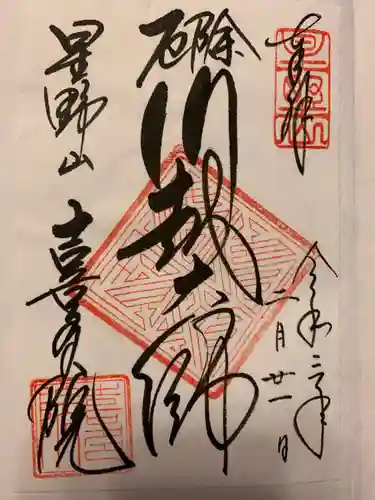 奉拝
令和三年
二月廿一日
厄除
川越大師
星野山
喜多院